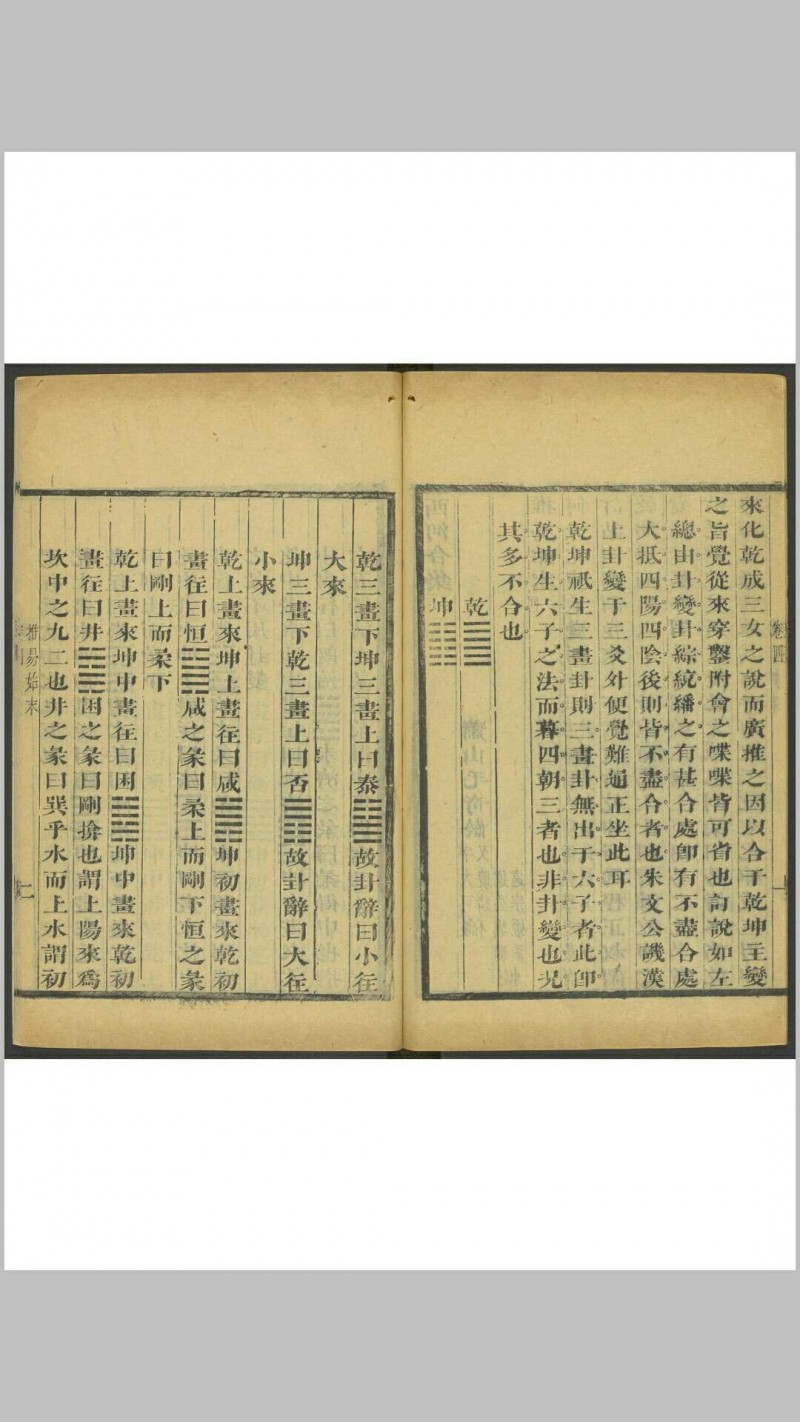 來化乾成三女之說而廣推之因以合于乾坤主變
之旨覺從來穿鑿附會之喋喋皆可省也訂說如左
總由卦變卦綜統繙之有甚合處卽有不盡合處
大抵四陽四陰後則皆不盡合者也朱文公譏漢
上卦變于三爻外便覺難通正坐此耳
乾坤祇生三畫卦則三畫卦無出于六子者此卽
乾坤生六子之法而暮四朝三者也非卦變也况
其多不合也
乾䷀
坤䷁
乾三畫下坤三畫上曰泰䷊故卦辭曰小往
大來
坤三畫下乾三畫上曰否䷋故卦辭曰大往
小來
乾上畫來坤上畫往曰咸䷞坤初畫來乾初
畫往曰恒䷟咸之彖曰柔上而剛下恒之彖
曰剛上而柔下
乾上畫來坤中畫往曰困䷮坤中畫來乾初
畫往曰井䷯困之彖曰剛揜也謂上陽來爲
坎中之九二也井之彖曰巽乎水而上水謂初
推易始末
卷四
二